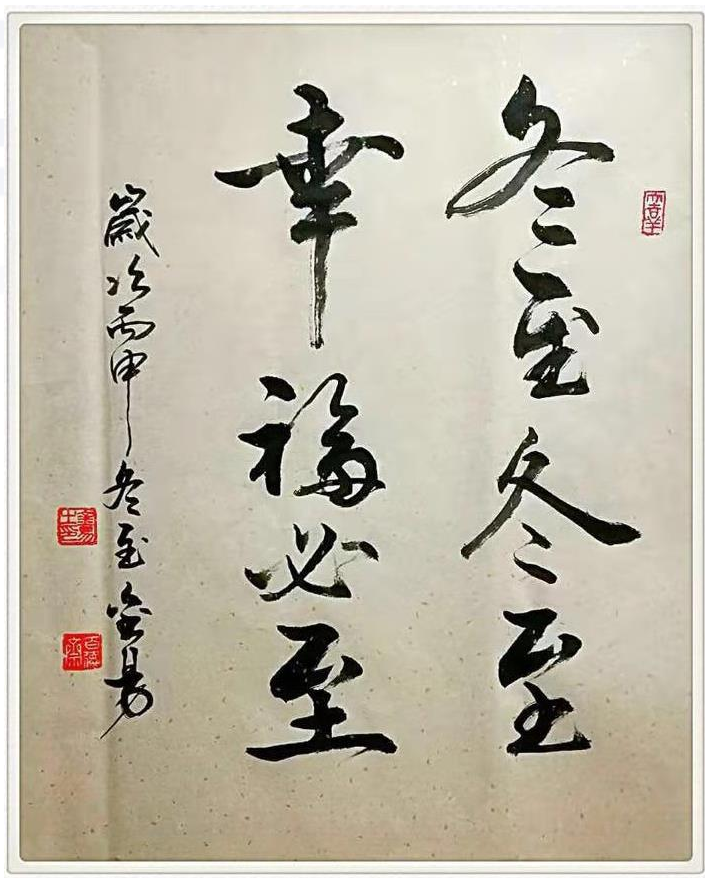 冬至冬至
幸福必至
歲次丙申冬至金易